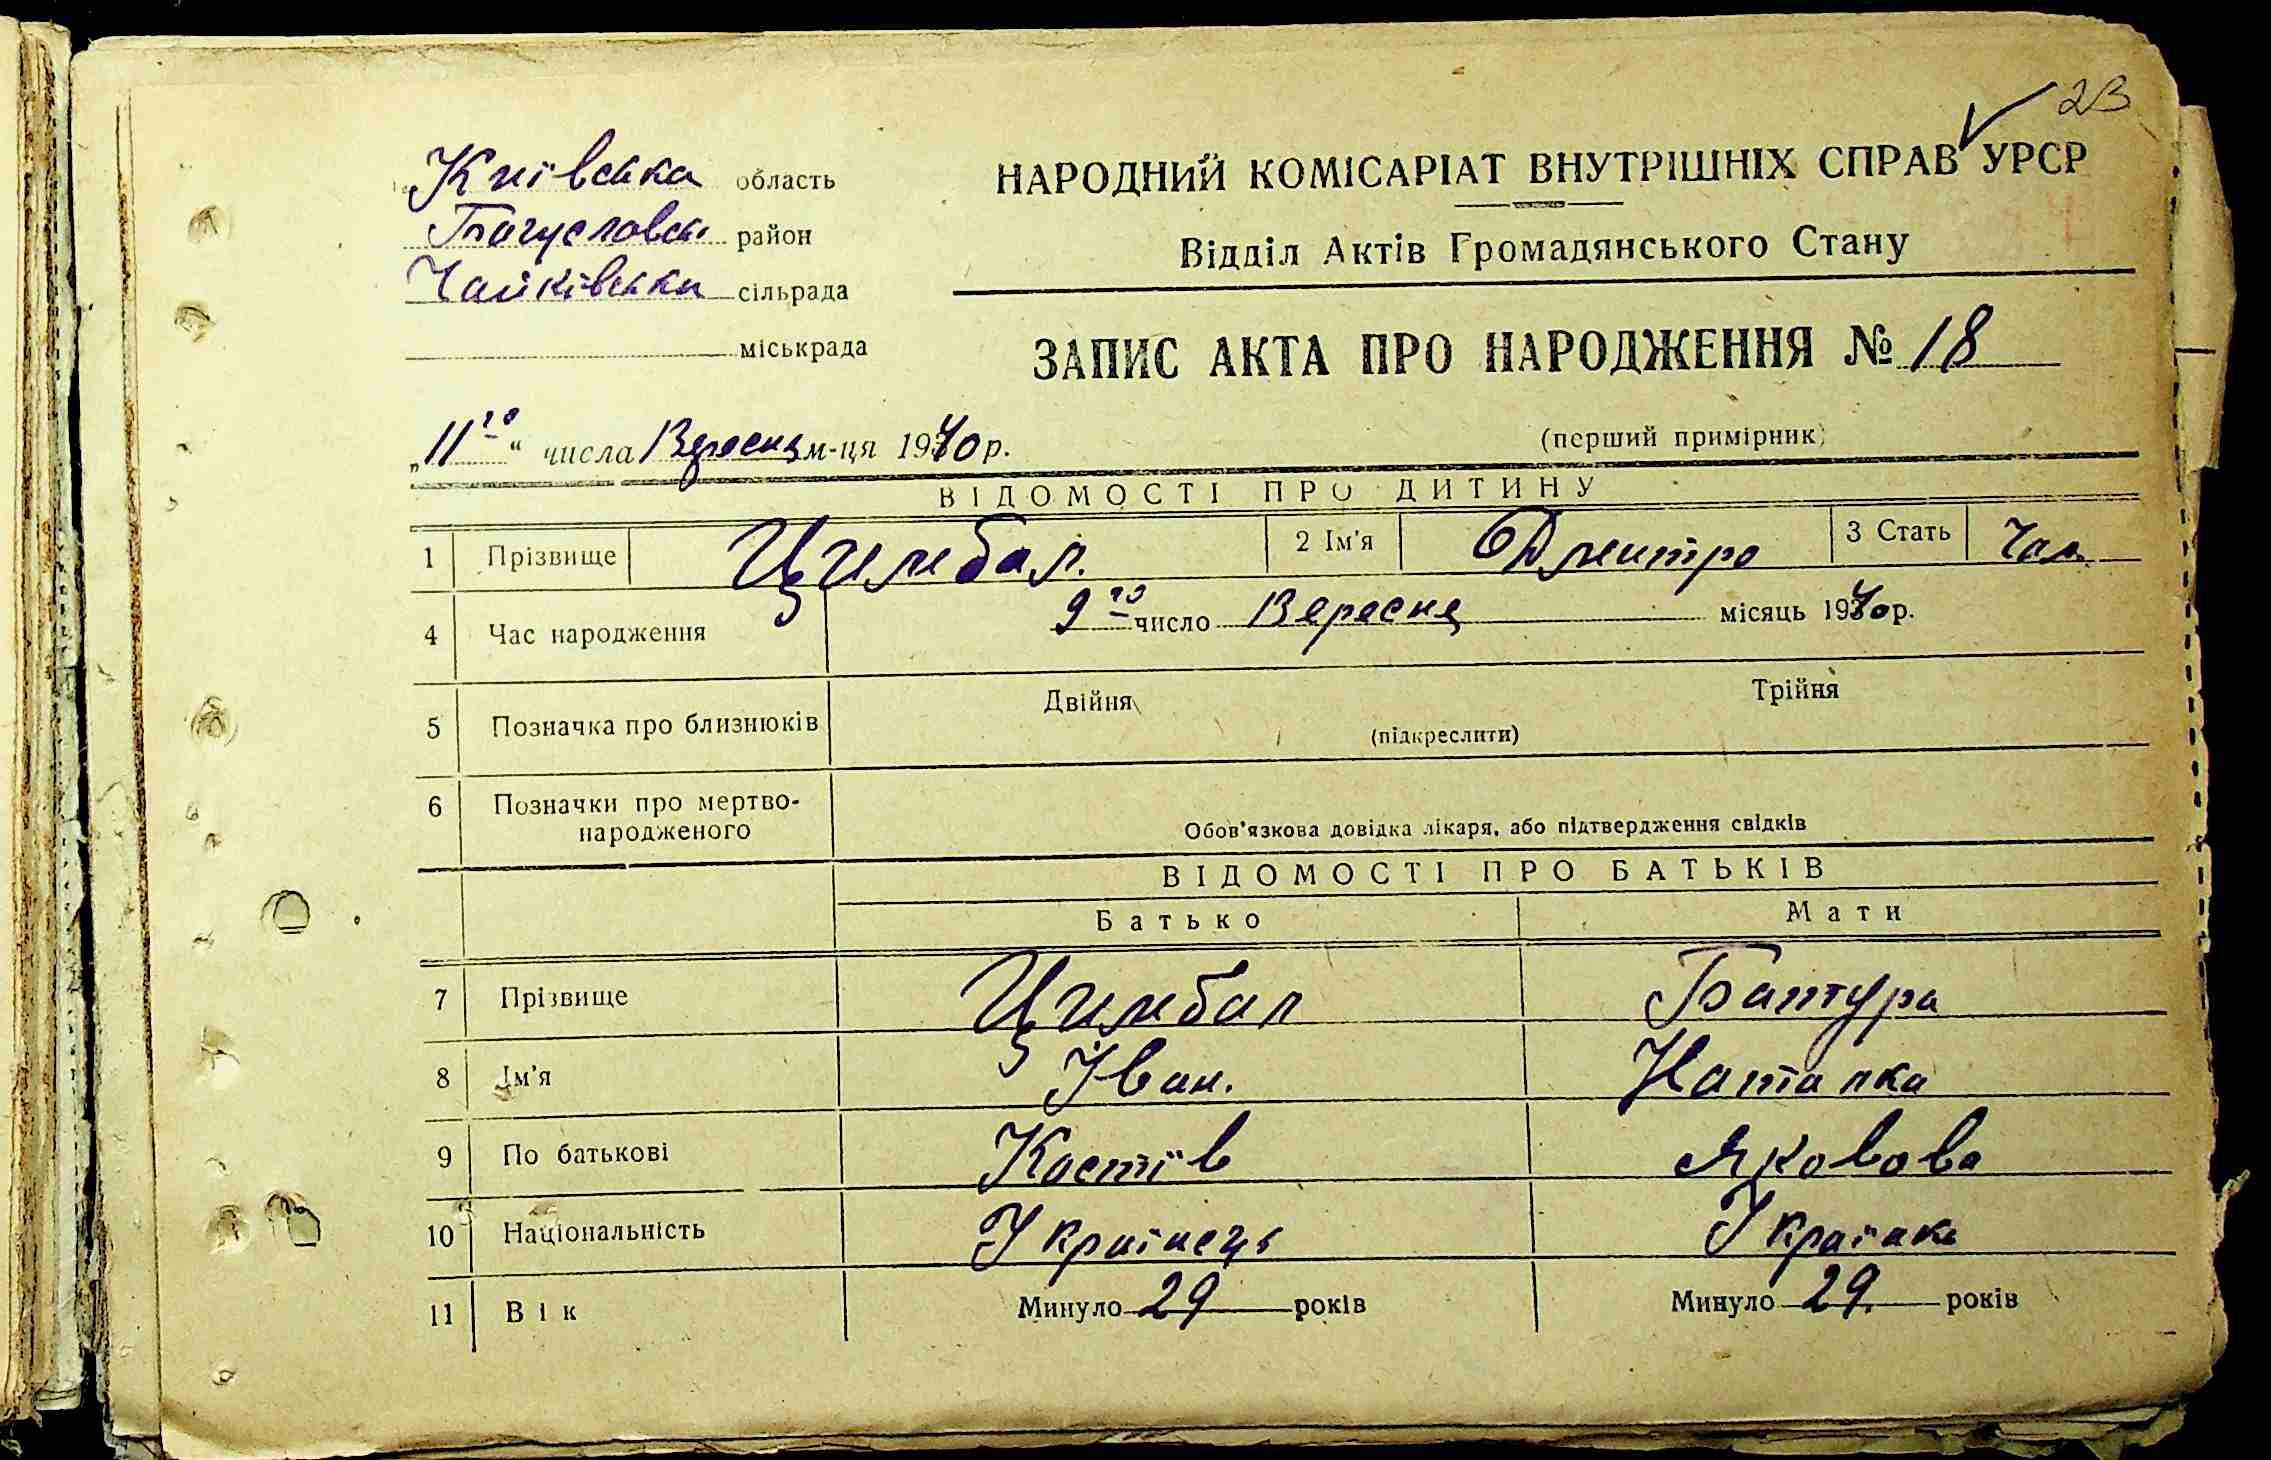 23
Київська область
Богуславськ район
Чайківська сільрада
міськрада
НАРОДНИЙ КОМІСАРІАТ ВНУТРІШНІХ СПРАВ УРСР
Відділ Актів Громадянського Стану
ЗАПИС АКТА ПРО НАРОДЖЕННЯ № 18
„11го“ числа Вересня м-ця 1940 р.
(перший примірник)
ВІДОМОСТІ ПРО ДИТИНУ
1 Прізвище Цимбал. 2 Ім'я Дмитро 3 Стать Чол
4 Час народження 9го число Вересня місяць 1940 р.
5 Позначка про близнюків Двійня Трійня
(підкреслити)
6 Позначки про мертво-
народженого
Обов'язкова довідка лікаря, або підтвердження свідків
ВІДОМОСТІ ПРО БАТЬКІВ
Батько Мати
7 Прізвище Цимбал Батура
8 Ім'я Іван. Наталка
9 По батькові Костів Яковова
10 Національність Українець Українка
11 Вік Минуло 29 років Минуло 29. років